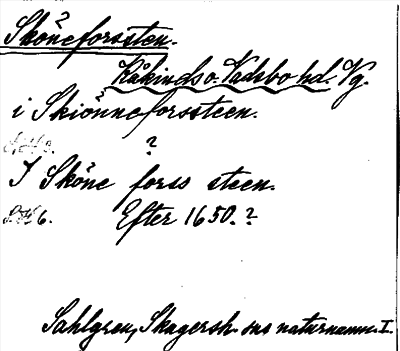 Sköneforssten.
Kåkinds o. Vadsbo hd. Vg.
i Skiönneforssteen.
?
I Sköne forss steen.
6. Efter 1650.?
Sahlgren, Skagersh. sns naturnamn. I.